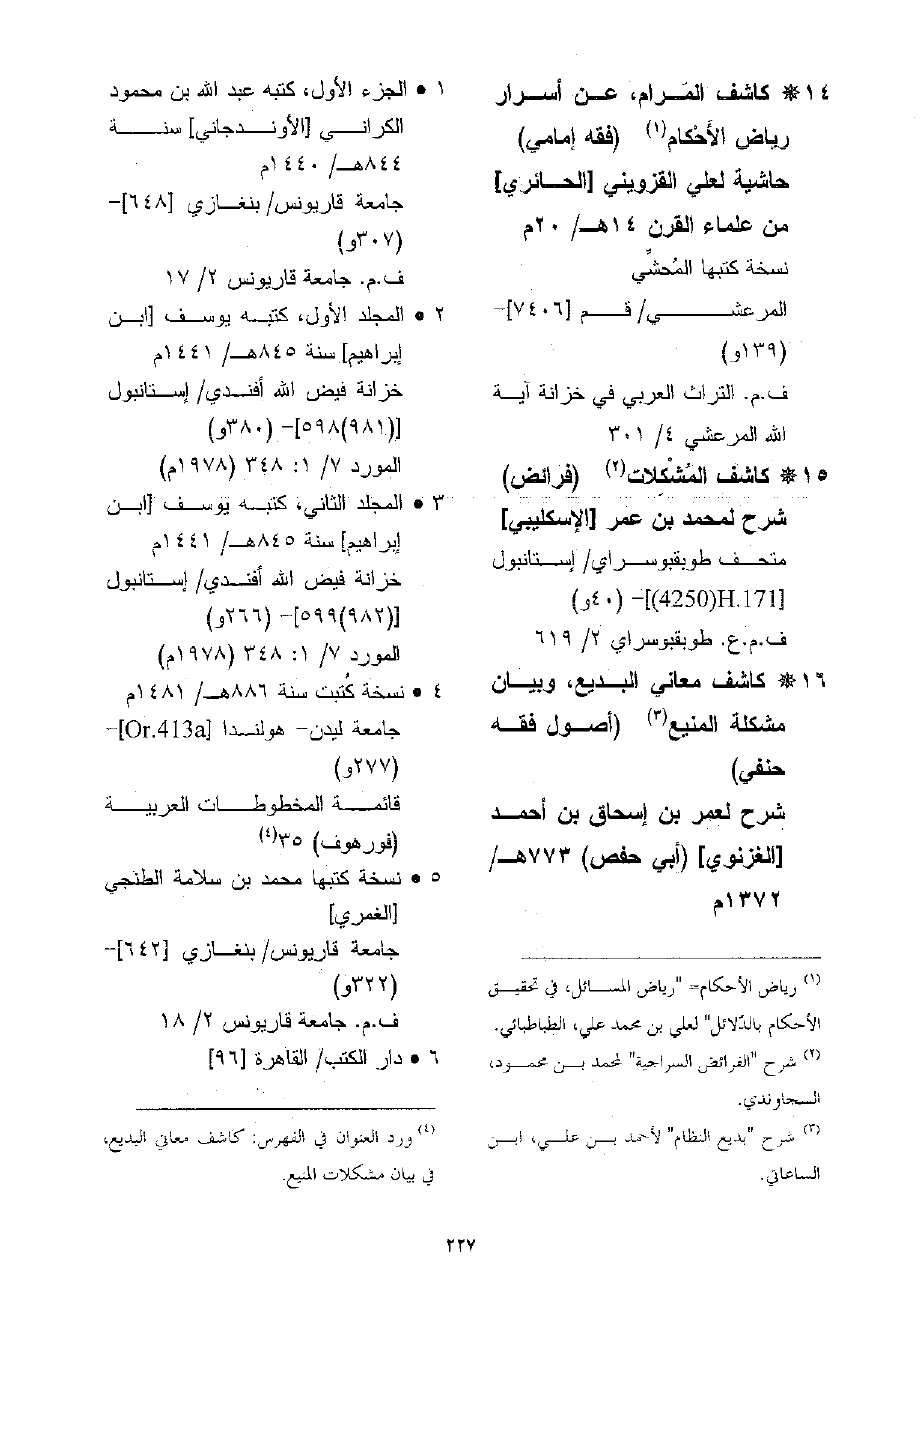 ١٤* كاشف المَرام، عن أسرار
رياض الأَحْكام(١) (فقه إمامي)
حاشية لعلي القزويني [الحائري]
من علماء القرن ١٤هـ/ ٢٠م
نسخة كتبها المُحشِّي
المرعشي/ قم [٧٤٠٦]-
(١٣٩و)
ف.م. التراث العربي في خزانة آية
الله المرعشي ٤/ ٣٠١
١٥* كاشف المُشْكلات(٢) (فرائض)
شرح لمحمد بن عمر [الإسكليبي]
متحف طوبقبوسراي/ إستانبول
[(4250)H.171]- (٤٠و)
ف.م.ع. طوبقبوسراي ٢/ ٦١٩
١٦* كاشف معاني البديع، وبيان
مشكلة المنيع(٣) (أصول فقه
حنفي)
شرح لعمر بن إسحاق بن أحمد
[الغزنوي] (أبي حفص) ٧٧٣هـ/
١٣٧٢م
(١) رياض الأحكام= "رياض المسائل، في تحقيق
الأحكام بالدّلائل" لعلي بن محمد علي، الطباطبائي.
(٢) شرح "الفرائض السراجية" لمحمد بن محمود،
السجاوندي.
(٣) شرح "بديع النظام" لأحمد بن علي، ابن
الساعاتي.
١ • الجزء الأول، كتبه عبد الله بن محمود
الكراني [الأوندجاني] سنة
٨٤٤هـ/ ١٤٤٠م
جامعة قاريونس/ بنغازي [٦٤٨]-
(٣٠٧و)
ف.م. جامعة قاريونس ٢/ ١٧
٢ • المجلد الأول، كتبه يوسف [ابن
إبراهيم] سنة ٨٤٥هـ/ ١٤٤١م
خزانة فيض الله أفندي/ إستانبول
[(٩٨١)٥٩٨]- (٣٨٠و)
المورد ٧/ ١: ٣٤٨ (١٩٧٨م)
٣ • المجلد الثاني، كتبه يوسف [ابن
إبراهيم] سنة ٨٤٥هـ/ ١٤٤١م
خزانة فيض الله أفندي/ إستانبول
[(٩٨٢)٥٩٩]- (٢٦٦و)
المورد ٧/ ١: ٣٤٨ (١٩٧٨م)
٤ • نسخة كُتبت سنة ٨٨٦هـ/ ١٤٨١م
جامعة ليدن- هولندا [Or.413a]-
(٢٧٧و)
قائمة المخطوطات العربية
(فورهوف) ٣٥(٤)
٥ • نسخة كتبها محمد بن سلامة الطنجي
[الغمري]
جامعة قاريونس/ بنغازي [٦٤٢]-
(٣٢٢و)
ف.م. جامعة قاريونس ٢/ ١٨
٦ • دار الكتب/ القاهرة [٩٦]
(٤) ورد العنوان في الفهرس: كاشف معاني البديع،
في بيان مشكلات المنيع.
٢٢٧